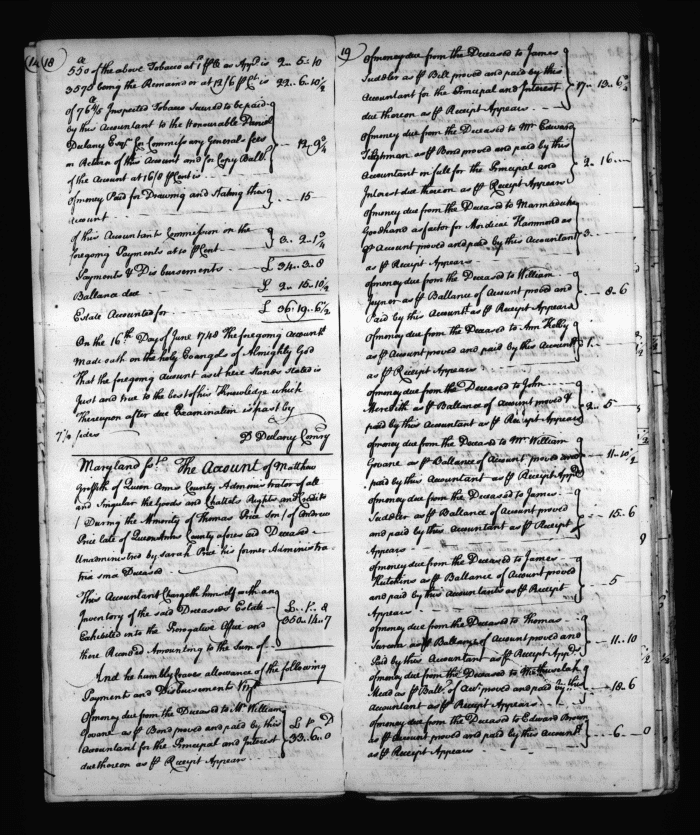 18
550 of the above Tobacco at as App.d is 2.. 5.. 10
3570 being the Remainder at 12/6 Ct. is 22.. 6.. 10½
of 76 Inspected Tobacco Secured to be paid
by this Accountant to the Honourable Daniel
Dulany Esq.r for Commissary Generals fees
on Return of this Account and for Copy Ball.
of the Account at 16/8 Ct is
of money Paid for Drawing and Stating this } .. 15
Account
of this Accountants Commission on the
foregoing Payments at 10 Cent } 3.. 2.. 1¾
Payments & Disbursements £ 34.. 3.. 8
Ballance due £ 2.. 15.. 10½
Estate Accounted for £ 36.. 19.. 6½
On the 16th Day of June 1748 The foregoing Account.t
Made oath on the holy Evangels of Almighty God
That the foregoing Account as it here Stands Stated is
Just and true to the best of his Knowledge which
Thereupon after due Examination is past by
7¼ sides D Dulany Comry
Maryland Sst. The Account of Matthew
Griffith of Queen Anns County Administrator of all
and Singular the Goods and Chattels Rights and Credits
/ During the Minority of Thomas Price Son / of Andrew
Price late of Queen Anns County aforesaid Deceased
Unadministred by Sarah Price his former Administra
trix sma Deceased
This Accountant Chargeth himself with an
Inventory of the said Deceaseds Estate
Exhibited into the Prerogative Office and
there Recorded Amounting to the Sum of
And he humbly Craves allowance of the following
Payments and Disbursements Viz.t
Of money due from the Deceased to Mr. William
Govane as Bond proved and paid by this
Accountant for the Principal and Interest
due thereon as Receipt Appears } 33.. 6.. 0
19
Of money due from the Deceased to James
Suddler as Bill proved and paid by this
Accountant for the Principal and Interest
due thereon as Receipt Appears
Of money due from the Deceased to Mr. Edward
Tilghman as Bond proved and paid by this
Accountant in full for the Principal and
Interest due thereon as Receipt Appears } 2.. 16
Of money due from the Deceased to Marmaduke
Goodhand as factor for Mordecai Hammond as
Account proved and paid by this Accountant } 3
as Receipt Appears
Of money due from the Deceased to William
Joyner as Ballance of Account proved and
Paid by this Account.t as Receipt Appears } 8.. 6
Of money due from the Deceased to Ann Kelly
as Account proved and paid by this Account.t } 1
as Receipt Appears
Of money due from the Deceased to John
Meredith as Ballance of Account proved &
paid by this Accountant as Receipt Appears } 2.. 5
Of money due from the Deceased to Mr. William
Govane as Ballance of Account proved and
paid by this Accountant as Receipt App.d } 11.. 10½
Of money due from the Deceased to James
Suddler as Ballance of Account proved
and paid by this Accountant as Receipt } 15.. 6
Appears
Of money due from the Deceased to James
Hutchins as Ballance of Account proved
and paid by this Accountants as Receipt } 5
Appears
Of money due from the Deceased to Thomas
as Ballance of Account proved and
Paid by this Accountant as Receipt App.d } 11.. 10
Of money due from the Deceased to Methuselah
Mead as Ball. of Acc.t proved and paid by this
Accountant as Receipt Appears } 18.. 6
Of money due from the Deceased to Edward Brown
as Account proved and paid by this Account.t } 6.. 0
as Receipt Appears